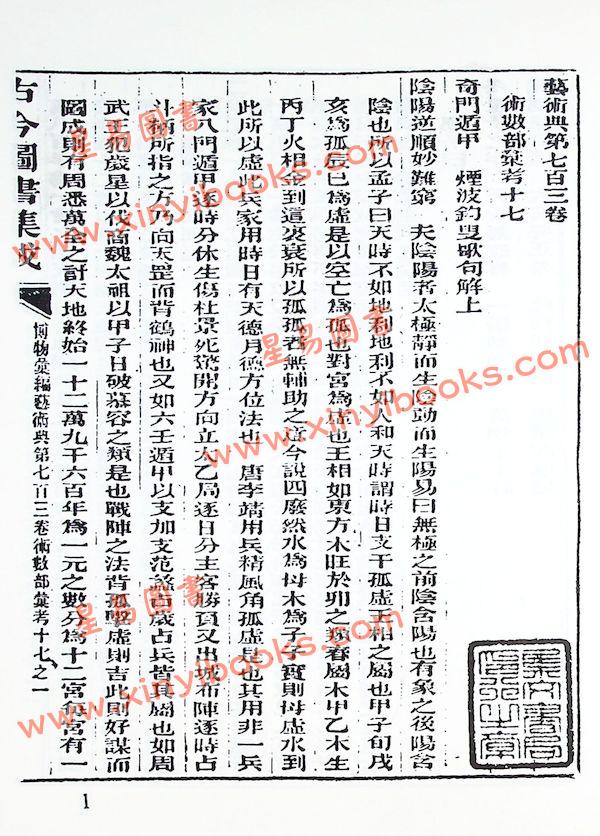 藝術典第七百三卷
術數部彙考十七
奇門遁甲 煙波釣叟歌句解上
陰陽逆順妙難窮 夫陰陽者太極靜而生陰動而生陽易曰無極之前陰含陽也有象之後陽含
陰也所以孟子曰天時不如地利地利不如人和天時謂時日支干孤虛王相之屬也甲子旬戌
亥爲孤辰巳爲虛是以空亡爲孤也對宮爲虛也王相如東方木旺於卯之類春屬木甲乙木生
丙丁火相金到這衰所以孤孤者無輔助之意今說四廢然水爲母木爲子子實則母虛水到
此所以虛此兵家用時日有天德月德方位法也 唐李靖用兵精風角孤虛是也其用非一兵
家八門遁甲逐時分休生傷杜景死驚開方向立太乙局逐日分主客勝負又出城布陣逐時占
斗柄所指之方乃向天罡而背鶴神也又如六壬遁甲以支加支范蠡占歲占兵皆其屬也如周
武王犯歲星以伐商魏太祖以甲子日破慕容之類是也戰陣之法背孤擊虛則吉此則好謀而
圖成則有周悉萬全之計天地終始一十二萬九千六百年爲一元之數分爲十二宮每宮有一
古今圖書集成
博物彙編藝術典第七百三卷術數部彙考十七之一
1
星易圖書
www.xinyibooks.com
星易圖書
www.xinyibooks.com
星易圖書
www.xinyibooks.com